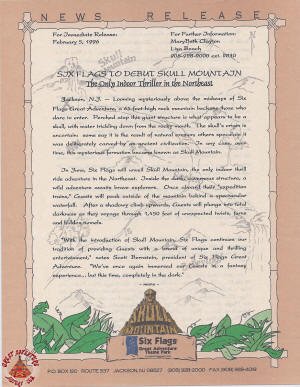 NEWS RELEASE
For Immediate Release:
February 5, 1996
For Further Information:
MaryBeth Clayton
Lisa
908-928-2000 ext.
Skull
Mountain
SIX FLAGS TO DEBUT SKULL MOUNTAIN
The Only Indoor Thriller in the Northeast
Jackson, N.J. — Looming mysteriously above the midways of Six
Flags Great Adventure, a 63-foot-high rock mountain beckons those who
dare to enter. Perched atop this giant structure is what appears to be a
skull, with water trickling down from the rocky mouth. The skull's origin is
uncertain: some say it is the result of natural erosion; others speculate it
was deliberately carved by an ancient civilization. In any case, over
time, this mysterious formation became known as Skull Mountain.
In June, Six Flags will unveil Skull Mountain, the only indoor thrill
ride adventure in the Northeast. Inside the dark, cavernous structure, a
wild adventure awaits brave explorers. Once aboard their "expedition
trains," Guests will peak outside of the mountain behind a spectacular
waterfall. After a shadowy climb upwards, Guests will plunge into total
darkness as they voyage through 1,450 feet of unexpected twists, turns
and hidden tunnels.
"With the introduction of Skull Mountain, Six Flags continues our
tradition of providing Guests with a brand of unique and thrilling
entertainment," notes Scott Bernstein, president of Six Flags Great
Adventure. "We've once again immersed our Guests in a fantasy
experience... but this time, completely in the dark."
- more -
SKULL
MOUNTAIN
Six Flags
Great Adventure
Theme Park
P.O. BOX 120 ROUTE 537 JACKSON NJ 08527 (908) 928-2000 FAX (908)
GREAT ADVENTURE